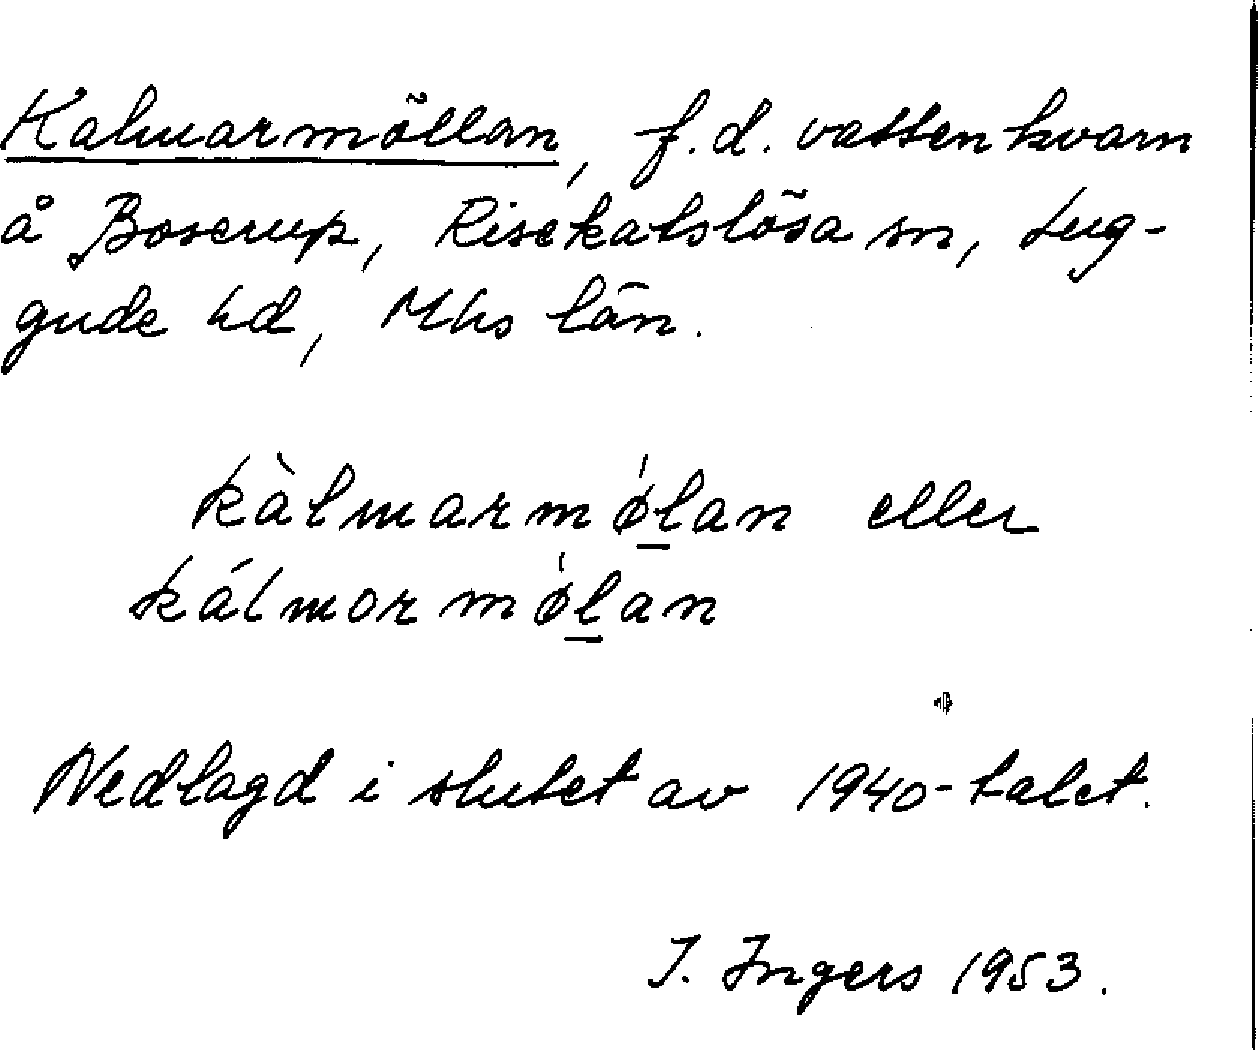 Kalmarmöllan, f.d. vattenkvarn
å Boserup, Risekatslösa sn, Lug-
gude hd, Mhs län.
kàlmarmǿlan eller
kálmormǿlan
Nedlagd i slutet av 1940-talet.
I. Ingers 1953.